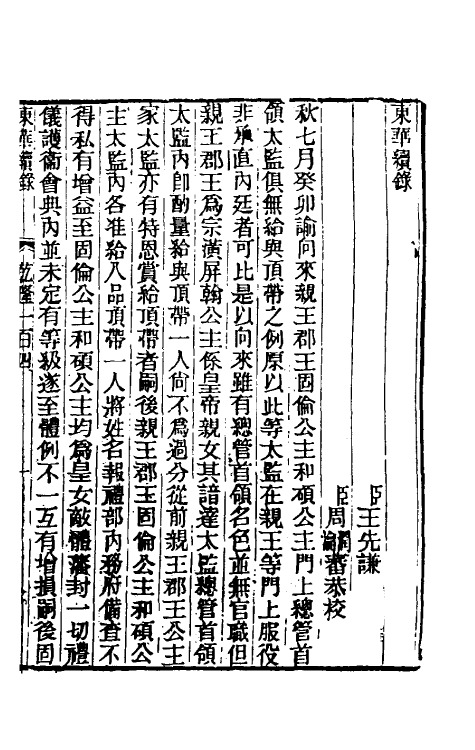 東華續錄
臣王先謙
臣周潤蕃恭校
秋七月癸卯諭向來親王郡王固倫公主和碩公主門上總管首
領太監俱無給與頂帶之例原以此等太監在親王等門上服役
非承直內廷者可比是以向來雖有總管首領名色並無官職但
親王郡王爲宗潢屏翰公主係皇帝親女其諳達太監總管首領
太監內卽酌量給與頂帶一人尙不爲過分從前親王郡王公主
家太監亦有特恩賞給頂帶者嗣後親王郡王固倫公主和碩公
主太監內各准給八品頂帶一人將姓名報禮部內務府備查不
得私有增益至固倫公主和碩公主均爲皇女敵體藩封一切禮
儀護衞會典內並未定有等級遂至體例不一互有增損嗣後固
東華續錄
乾隆一百四
一